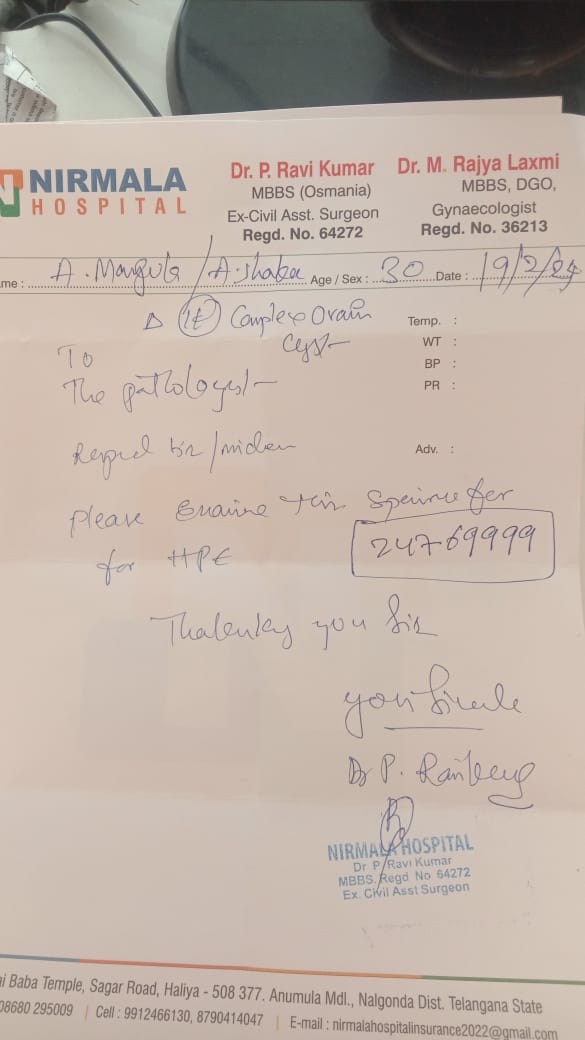 NIRMALA
HOSPITAL
Dr. P. Ravi Kumar
MBBS (Osmania)
Ex-Civil Asst. Surgeon
Regd. No. 64272
Dr. M. Rajya Laxmi
MBBS, DGO,
Gynaecologist
Regd. No. 36213
ame : A. Mangula / A. shaka Age / Sex : 30 Date : 19/2/24
Complex Ovarin
Cyst
Temp. :
WT :
BP :
PR :
Adv. :
To
The pathologist
sir/
Please this for
for HPE
24769999
you Sir
Dr P.
NIRMALA HOSPITAL
Dr P Ravi Kumar
MBBS. Regd No 64272
Ex. Civil Asst Surgeon
ai Baba Temple, Sagar Road, Haliya - 508 377. Anumula Mdl., Nalgonda Dist. Telangana State
08680 295009 | Cell : 9912466130, 8790414047 | E-mail : nirmalahospitalinsurance2022@gmail.com